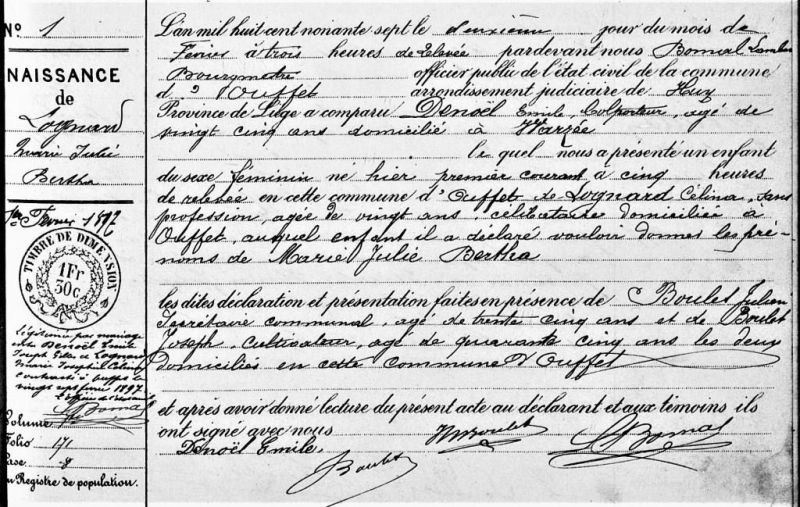 N° 1
NAISSANCE
de
Lognard
Marie Julie
Bertha
1er Février 1897
TIMBRE DE DIMENSION
1 Fr
50 c.
Légitimée par mariage
entre Denoël Emile
Joseph et de Lognard
Marie Joséphine Célina
contracté à Ouffet le
vingt sept février 1897.
L'officier de l'état civil
LBomal
Volume
Folio 171
Case 8
du Registre de population.
L'An mil huit cent nonante sept le deuxième jour du mois de
Février à trois heures de relevée pardevant nous Bomal Lambert
Bourgmestre officier public de l'état civil de la commune
d'Ouffet arrondissement judiciaire de Huy
Province de Liège a comparu Denoël Emile, Colporteur, agé de
vingt cinq ans domicilié à Warzée
lequel nous a présenté un enfant
du sexe féminin né hier premier courant à cinq heures
de relevée en cette commune d'Ouffet de Lognard Célina, sans
profession, agée de vingt ans, célibataire domiciliée à
Ouffet, auquel enfant il a déclaré vouloir donner les pré-
noms de Marie Julie Bertha
les dites déclaration et présentation faites en présence de Boulet Julien
Secrétaire communal, agé de trente cinq ans et de Boulet
Joseph, Cultivateur, agé de quarante cinq ans les deux
domiciliés en cette commune d'Ouffet
et après avoir donné lecture du présent acte au déclarant et aux témoins ils
ont signé avec nous
Denoël Emile.
Boulet
LBomal
Boulet